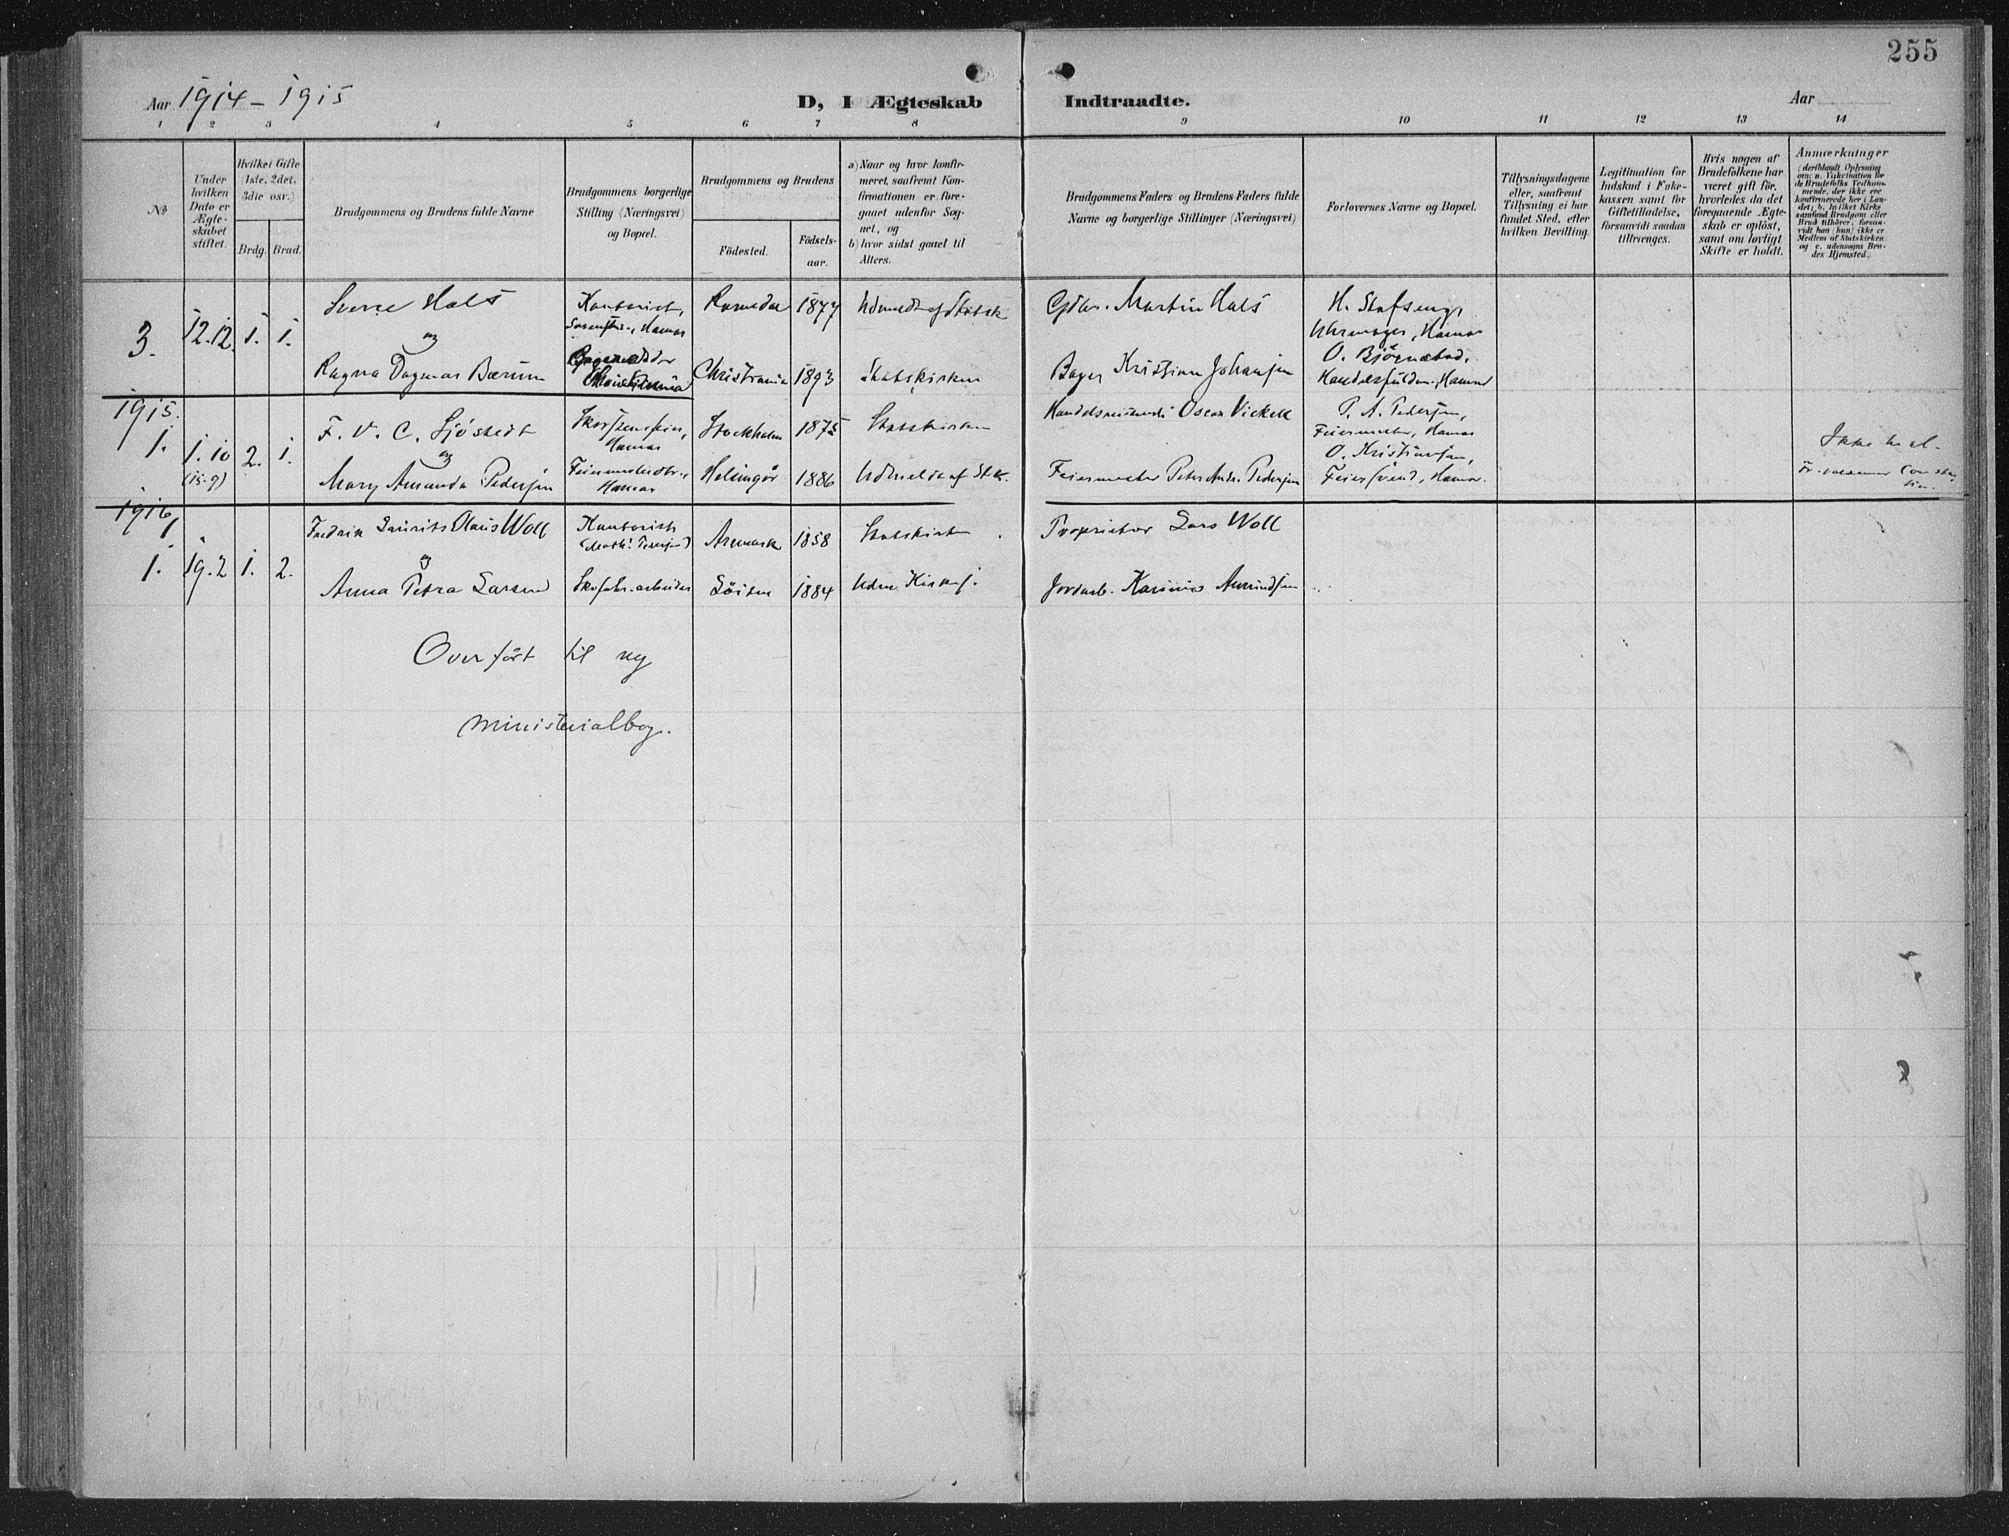 255
Aar 1914 – 1915
D, I Ægteskab Indtraadte.
Aar
1 2 3 4 5 6 7 8 9 10 11 12 13 14
No
Under hvilken Dato er Ægteskabet stiftet.
Hvilket Gifte (1ste, 2det, 3die osv.)
Brdg. Brud.
Brudgommens og Brudens fulde Navne
Brudgommens borgerlige Stilling (Næringsvei) og Bopæl.
Brudgommens og Brudens
Födested.
Födsels-aar.
a) Naar og hvor konfirmeret, saafremt Konfirmationen er foregaaet udenfor Sognet, og
b) hvor sidst gaaet til Alters.
Brudgommens Faders og Brudens Faders fulde Navne og borgerlige Stillinger (Næringsvei)
Forlovernes Navne og Bopæl.
Tillysningsdagene eller, saafremt Tillysning ei har fundet Sted, efter hvilken Bevilling.
Legitimation for Indskud i Enkekassen samt for Giftetilladelse, forsaavidt saadan tiltrænges.
Hvis nogen af Brudefolkene har været gift för, hvorledes da det foregaaende Ægteskab er oplöst, samt om lovligt Skifte er holdt.
Anmærkninger
3. 12.12. 1. 1.
Sverre Hals
Kontorist, Hamar
Romedal 1877
Udmeldt af Statsk
Gdbr. Martin Hals
H. Stafseng, Uhrmager, Hamar
og
Ragna Dagmar Bærum
Christiania
Christiania 1893
Statskirken
Bager Kristian Johansen
O. Bjørnstad, Hamar
1915.
1. 1.10 (15.9) 2. 1.
F. V. C. Sjöstedt
Skorstensfeier, Hamar
Stockholm 1875
Statskirken
Oscar Vickell
P. A. Pedersen, Feiermester, Hamar
og
Mary Amanda Pedersen
Hamar
Helsingør 1886
Udmeldt af St.k.
Feiermester Peter Andr. Pedersen
O. Kristiansen, Feiersvend, Hamar.
Ikke
1916,
1. 19.2 1. 2.
Fredrik Laurits Olaus Woll
Kontorist
1858
Statskirken
Proprietær Lars Woll
og
Anna Petra Larsen
Løiten 1884
Uden Kirkes.
Jordarb. Karinus Amundsen
Overført til ny
ministerialbog.